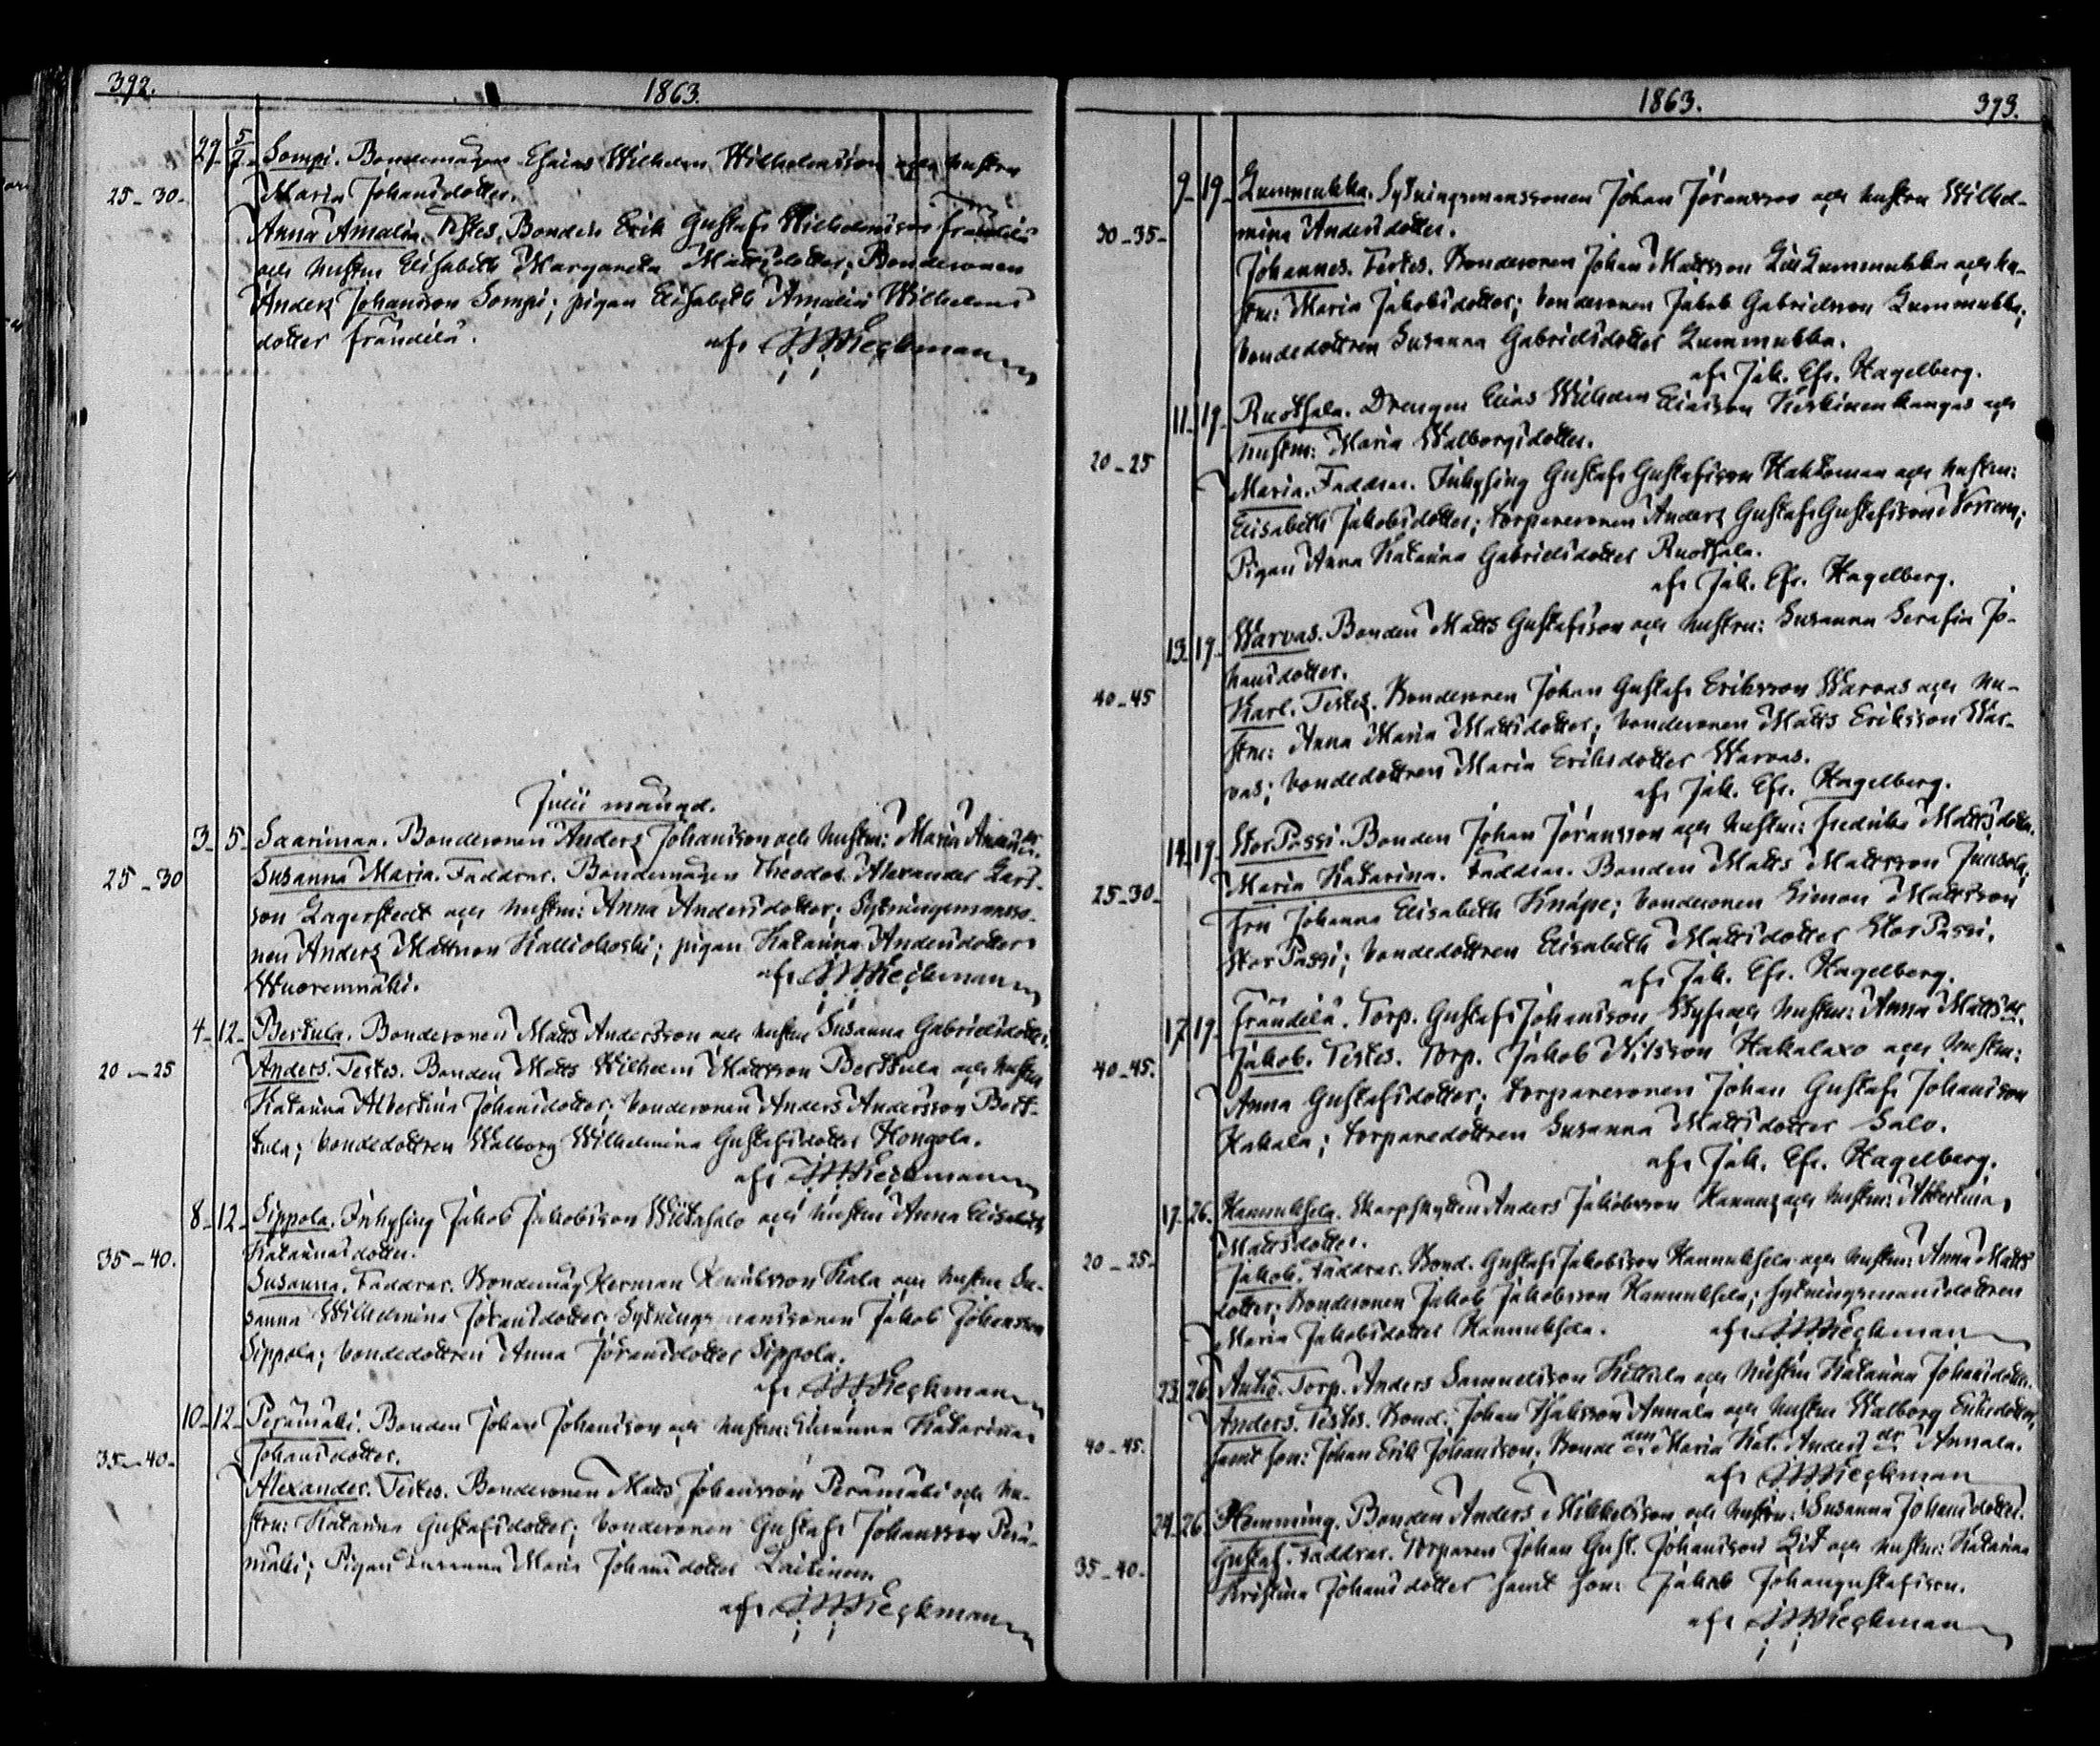 392. 1863.
27 5/7 Sompi. Bondemågen Esaias Wilhelm Wilhelmsson och hustru
25-30. Maria Johansdotter.
Anna Amalia. Testes. Bonden Erik Gustaf Wilhelmsson Frändilä
och hustru Elisabeth Margareta Mattsdotter; Bondesonen
Anders Johansson Sompi; pigan Elisabeth Amalia Wilhelms
dotter Frändilä.
af
Julii månad.
3. 5. Saarimaa. Bondesonen Anders Johansson och hustru: Maria
25-30 Susanna Maria. Faddrar. Bondemågen Theodor Alexander Carls-
son Lagerstedt och hustru: Anna Andersdotter; Sytningsmansso-
nen Anders Mattsson Kalliokoski; pigan Katarina Andersdotter
Wuorenmäki. af
4. 12. Berttula. Bondesonen Matts Andersson och hustru Susanna Gabrielsdotter.
20-25 Anders. Testes. Bonden Matts Wilhelm Mattsson Berttula och hustru
Katarina Albertina Johansdotter; bondesonen Anders Andersson Bert-
tula; bondedottren Walborg Wilhelmina Gustafsdotter Hongola.
af
8. 12. Sippola. Inhysing Jakob Jakobsson Wiitasalo och hustru Anna Elisabeth
35-40. Katarinasdotter.
Susanna. Faddrar. Bondemåg Herman Kala och hustru Su-
sanna Wilhelmina Jöransdotter; Sytningsmanssonen Jakob Johansson
Sippola; bondedottren Anna Jöransdotter Sippola.
af
10. 12. Perämäki. Bonden Johan Johansson och hustru: Susanna Katarina
35-40. Johansdotter.
Alexander. Testes. Bondesonen Matts Johansson Perämäki och hu-
stru: Katarina Gustafsdotter; bondesonen Gustaf Johansson Perä-
mäki; Pigan Susanna Maria Johansdotter Laitinen.
af
1863. 393.
9. 19. Lummukka. Sytningsmanssonen Johan Jöransson och hustru Wilhel-
30-35. mina Andersdotter.
Johannes. Testes. Bondesonen Johan Mattsson Lill Lummukka och hu-
stru: Maria Jakobsdotter; bondesonen Jakob Gabrielsson Lummukka;
bondedottren Susanna Gabrielsdotter Lummukka.
af Jak. Efr. Hagelberg.
11. 19. Ruotsala. Drengen Elias Wilhelm Eliasson Keskinenkangas och
20-25 hustru: Maria Walborgsdotter.
Maria. Faddrar. Inhysing Gustaf Gustafsson Hahtomaa och hustru:
Elisabeth Jakobsdotter; torparesonen Anders Gustaf Gustafsson
Pigan Anna Katarina Gabrielsdotter Ruotsala.
af Jak. Efr. Hagelberg.
13. 19. Warvas. Bonden Matts Gustafsson och hustru: Susanna Serafia Jo-
hansdotter.
40-45 Karl. Testes. Bondesonen Johan Gustaf Eriksson Warvas och hu-
stru: Anna Maria Mattsdotter; bondesonen Matts Eriksson War-
vas; bondedottren Maria Eriksdotter Warvas.
af Jak. Efr. Hagelberg.
14. 19. Stor Passi. Bonden Johan Jöransson och hustru: Fredrika Mattsdotter.
25-30. Maria Katarina. Faddrar. Bonden Matts Mattsson Junsola;
Fru Johanna Elisabeth Knape; bondesonen Simon Mattsson
Stor Passi; bondedottren Elisabeth Mattsdotter Stor Passi.
af Jak. Efr. Hagelberg.
17. 19. Frändilä. Torp. Gustaf Johansson och hustru: Anna Mattsdr.
40-45. Jakob. Testes. Torp. Jakob Nilsson Hakalaxo och hustru:
Anna Gustafsdotter; torparesonen Johan Gustaf Johansson
Hakala; torparedottren Susanna Mattsdotter Salo.
af Jak. Efr. Hagelberg.
17. 26. Hannuksela. Skarpskytten Anders Jakobsson och hustru: Albertina
20-25. Mattsdotter.
Jakob. Faddrar. Bond. Gustaf Jakobsson Hannuksela och hustru: Anna Matts
dotter; Bondesonen Jakob Jakobsson Hannuksela; sytningsmansdottren
Maria Jakobsdotter Hannuksela. af
23. 26. Antio. Torp. Anders Samuelsson och hustru Katarina Johansdotter.
Anders. Testes. Bond. Johan Annala och hustru Walborg Eriksdotter,
40-45. samt son: Johan Erik Johansson; Bonde dttn Maria Kat. Anders dr Annala.
af
24. 26. Hemming. Bonden Anders Mikkelsson och hustru: Susanna Johansdotter.
35-40. Gustaf. Faddrar. Torparen Johan Gust. Johansson och hustru: Katarina
Kristina Johansdotter samt son: Jakob Johangustafsson.
af